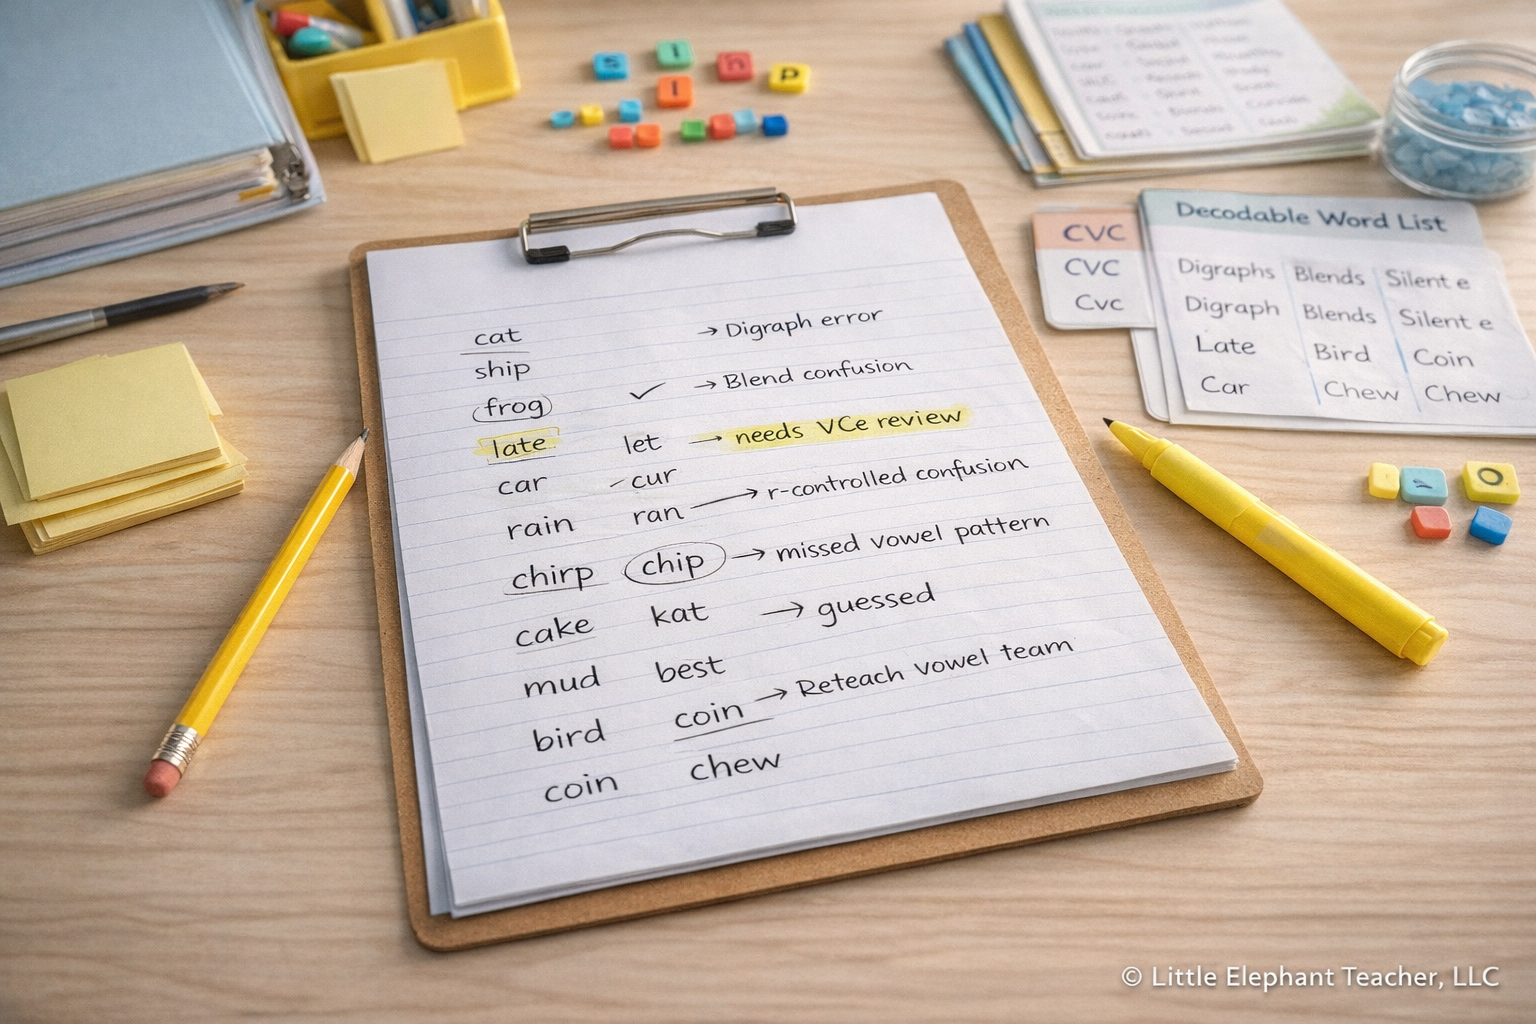 s i h p
l
CVC
CVC
Cvc
Decodable Word List
Digraphs Blends Silent e
Digraph Blends Silent e
Late Bird Coin
Car Chew Chew
cat → Digraph error
ship
frog ✓ → Blend confusion
late let → needs VCe review
car cur
rain ran → r-controlled confusion
chirp chip → missed vowel pattern
cake kat → guessed
mud best
bird coin → Reteach vowel team
coin chew
O
© Little Elephant Teacher, LLC